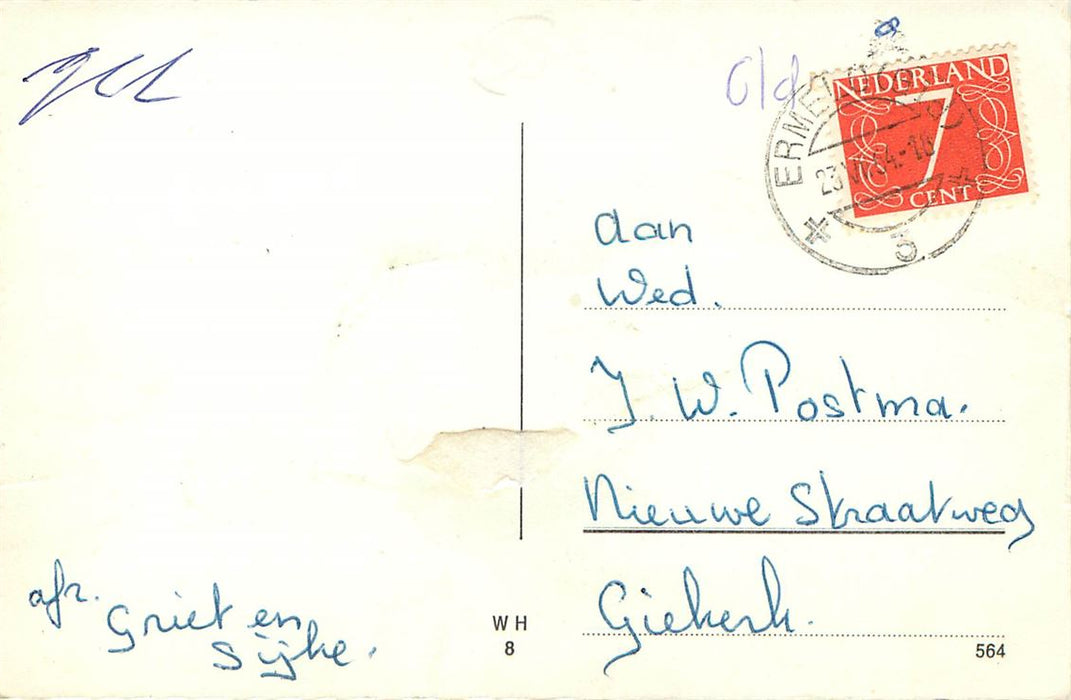 NEDERLAND
7
CENT
ERMELO
3
aan
Wed.
J. W. Postma.
Nieuwe Straatweg
Giekerk.
afz.
Griet en
Sijke.
W H
8
564